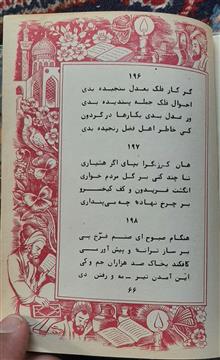 ۱۹۶
گر کار فلک بعدل سنجیده بدی
احوال فلک جمله پسندیده بدی
ور عدل بدی بکارها در گردون
کی خاطر اهل فضل رنجیده بدی
۱۹۷
هان کوزه‌گرا بپای اگر هشیاری
تا چند کنی بر گل مردم خواری
انگشت فریدون و کف کیخسرو
بر چرخ نهاده چه می‌پنداری
۱۹۸
هنگام صبوح ای صنم فرخ پی
بر ساز ترانه و پیش آور می
کافکند بخاک صد هزاران جم و کی
این آمدن تیر مه و رفتن دی
۶۶